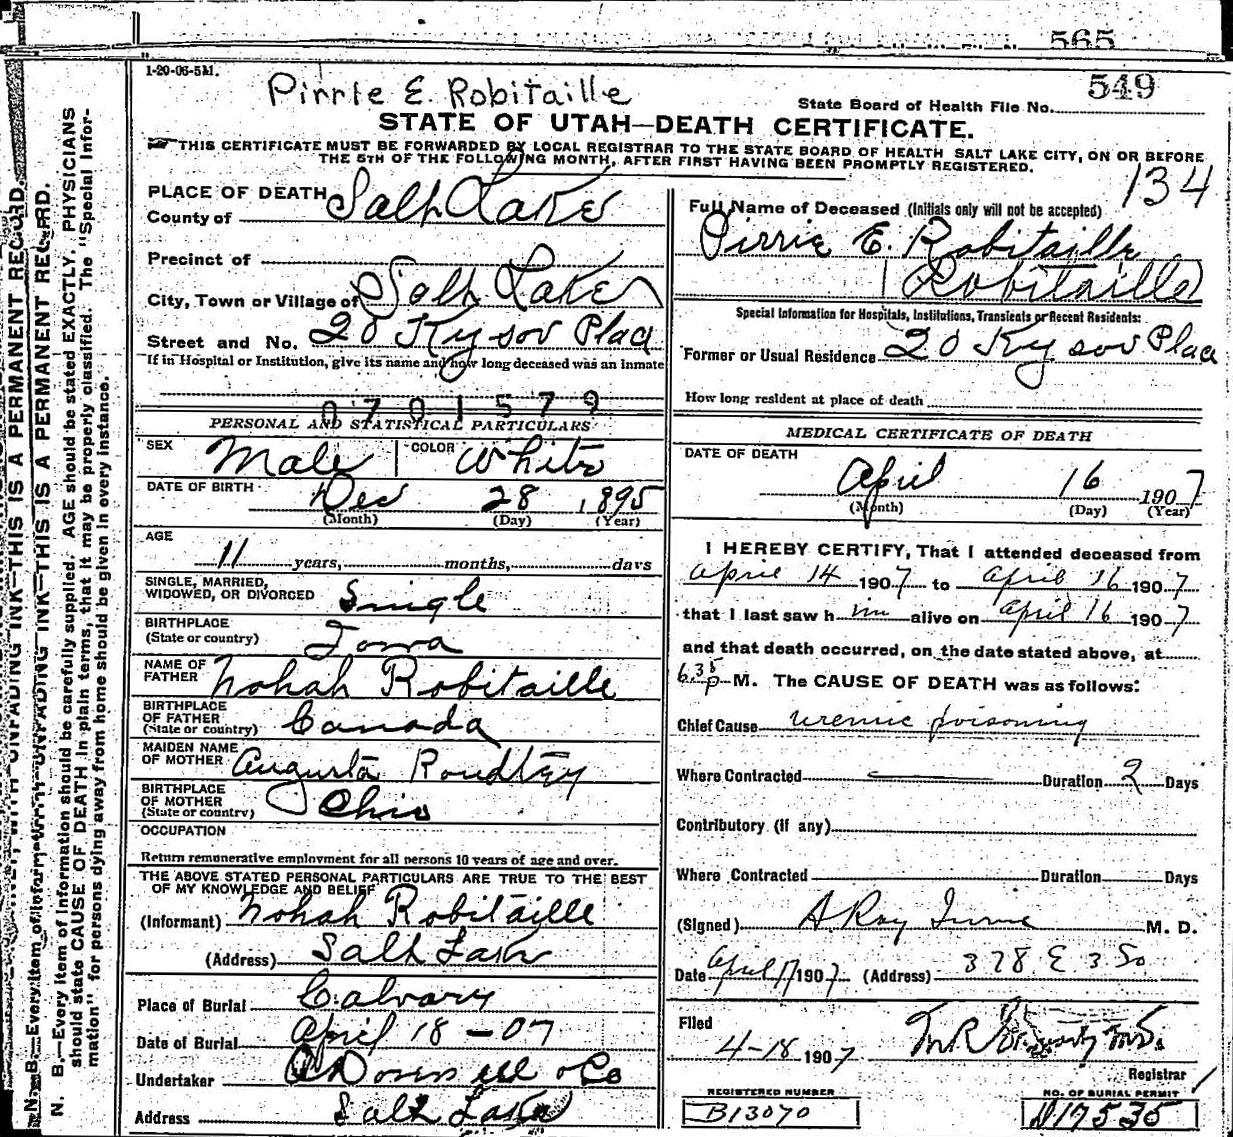 565
1-20-06-5M.
Pirrie E. Robitaille
State Board of Health File No. 549
STATE OF UTAH—DEATH CERTIFICATE.
THIS CERTIFICATE MUST BE FORWARDED BY LOCAL REGISTRAR TO THE STATE BOARD OF HEALTH SALT LAKE CITY, ON OR BEFORE
THE 5TH OF THE FOLLOWING MONTH, AFTER FIRST HAVING BEEN PROMPTLY REGISTERED.
134
PLACE OF DEATH
County of Salt Lake
Precinct of
City, Town or Village of Salt Lake
Street and No. 20 Kysor Place
If in Hospital or Institution, give its name and how long deceased was an inmate
0701579
PERSONAL AND STATISTICAL PARTICULARS
SEX Male COLOR White
DATE OF BIRTH Dec 28 1895
(Month) (Day) (Year)
AGE
11 years, months, days
SINGLE, MARRIED,
WIDOWED, OR DIVORCED Single
BIRTHPLACE
(State or country) Iowa
NAME OF
FATHER Nohah Robitaille
BIRTHPLACE
OF FATHER
(State or country) Canada
MAIDEN NAME
OF MOTHER Augusta
BIRTHPLACE
OF MOTHER
(State or country) Ohio
OCCUPATION
Return remunerative employment for all persons 10 years of age and over.
THE ABOVE STATED PERSONAL PARTICULARS ARE TRUE TO THE BEST
OF MY KNOWLEDGE AND BELIEF
(Informant) Nohah Robitaille
(Address) Salt Lake
Place of Burial Calvary
Date of Burial April 18-07
Undertaker & Co
Address Salt Lake
Full Name of Deceased (Initials only will not be accepted)
Pirrie E. Robitaille
Robitaille
Special Information for Hospitals, Institutions, Transients or Recent Residents:
Former or Usual Residence 20 Kysor Place
How long resident at place of death
MEDICAL CERTIFICATE OF DEATH
DATE OF DEATH
April 16 1907
(Month) (Day) (Year)
I HEREBY CERTIFY, That I attended deceased from
April 14 1907 to April 16 1907
that I last saw him alive on April 16 1907
and that death occurred, on the date stated above, at
6.35 p M. The CAUSE OF DEATH was as follows:
Chief Cause uremic poisoning
Where Contracted Duration 2 Days
Contributory (if any)
Where Contracted Duration Days
(Signed) A Ray Irvine M. D.
Date April 17 1907 (Address) 378 E 3 So
Filed
4-18 1907
Registrar
REGISTERED NUMBER
B13070
NO. OF BURIAL PERMIT
D17535
N. B.—Every item of information should be carefully supplied. AGE should be stated EXACTLY. PHYSICIANS
should state CAUSE OF DEATH in plain terms, that it may be properly classified. The "Special Infor-
mation" for persons dying away from home should be given in every instance.
UNFADING INK—THIS IS A PERMANENT RECORD.
UNFADING INK—THIS IS A PERMANENT RECORD.
N. B.—Every item of information